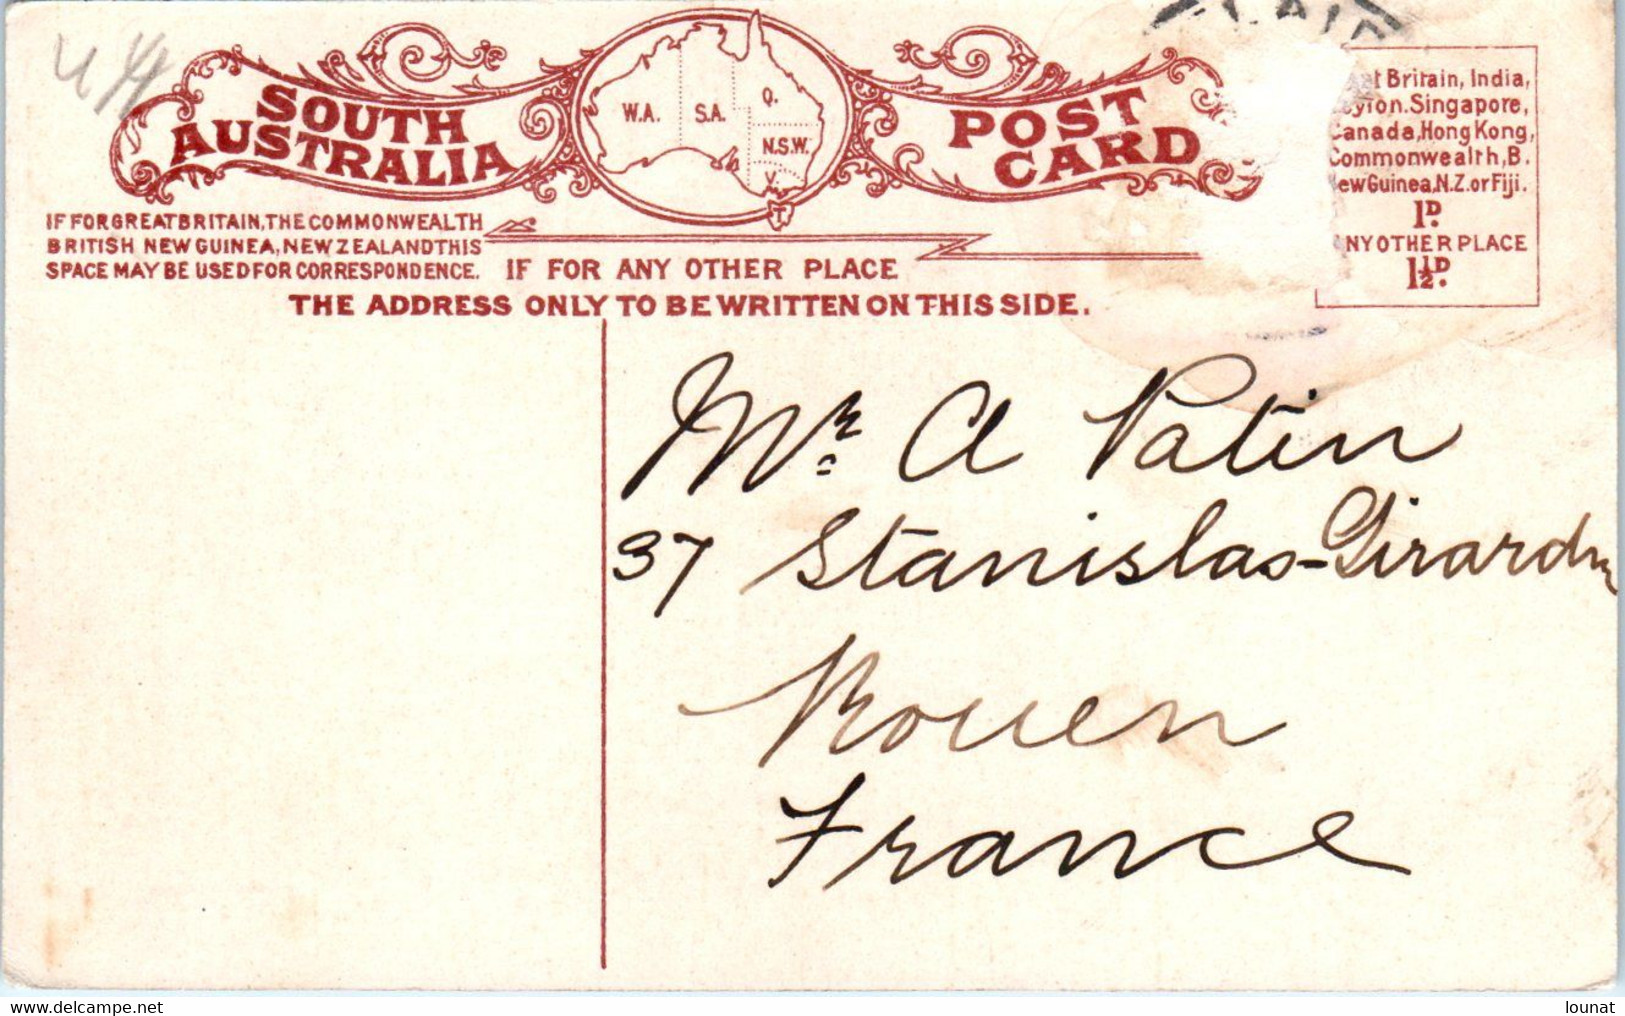 SOUTH
AUSTRALIA
W.A.
S.A.
Q.
N.S.W.
V.
T
POST
CARD
Britain, India,
Singapore,
Canada, Hong Kong,
Commonwealth, B.
New Guinea, N.Z. or Fiji.
1D.
ANY OTHER PLACE
1½D.
IF FOR GREAT BRITAIN, THE COMMONWEALTH
BRITISH NEW GUINEA, NEW ZEALAND THIS
SPACE MAY BE USED FOR CORRESPONDENCE.
IF FOR ANY OTHER PLACE
THE ADDRESS ONLY TO BE WRITTEN ON THIS SIDE.
Mr. A Patin
37 Stanislas-Girardin
Rouen
France
www.delcampe.net
lounat